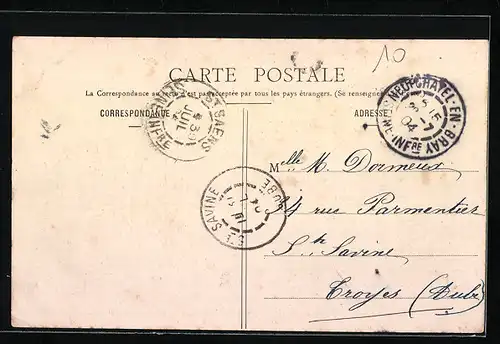 10
CARTE POSTALE
La Correspondance au recto n'est pas acceptée par tous les pays étrangers. (Se renseigner
CORRESPONDANCE
ADRESSE
ST SAENS
JUIL
INFRE
NEUFCHATEL-EN-BRAY
7
04
INFRE
STE SAVINE
AUBE
Melle M. Dormeux
24 rue Parmentier
Ste Savine
Troyes (Aube)